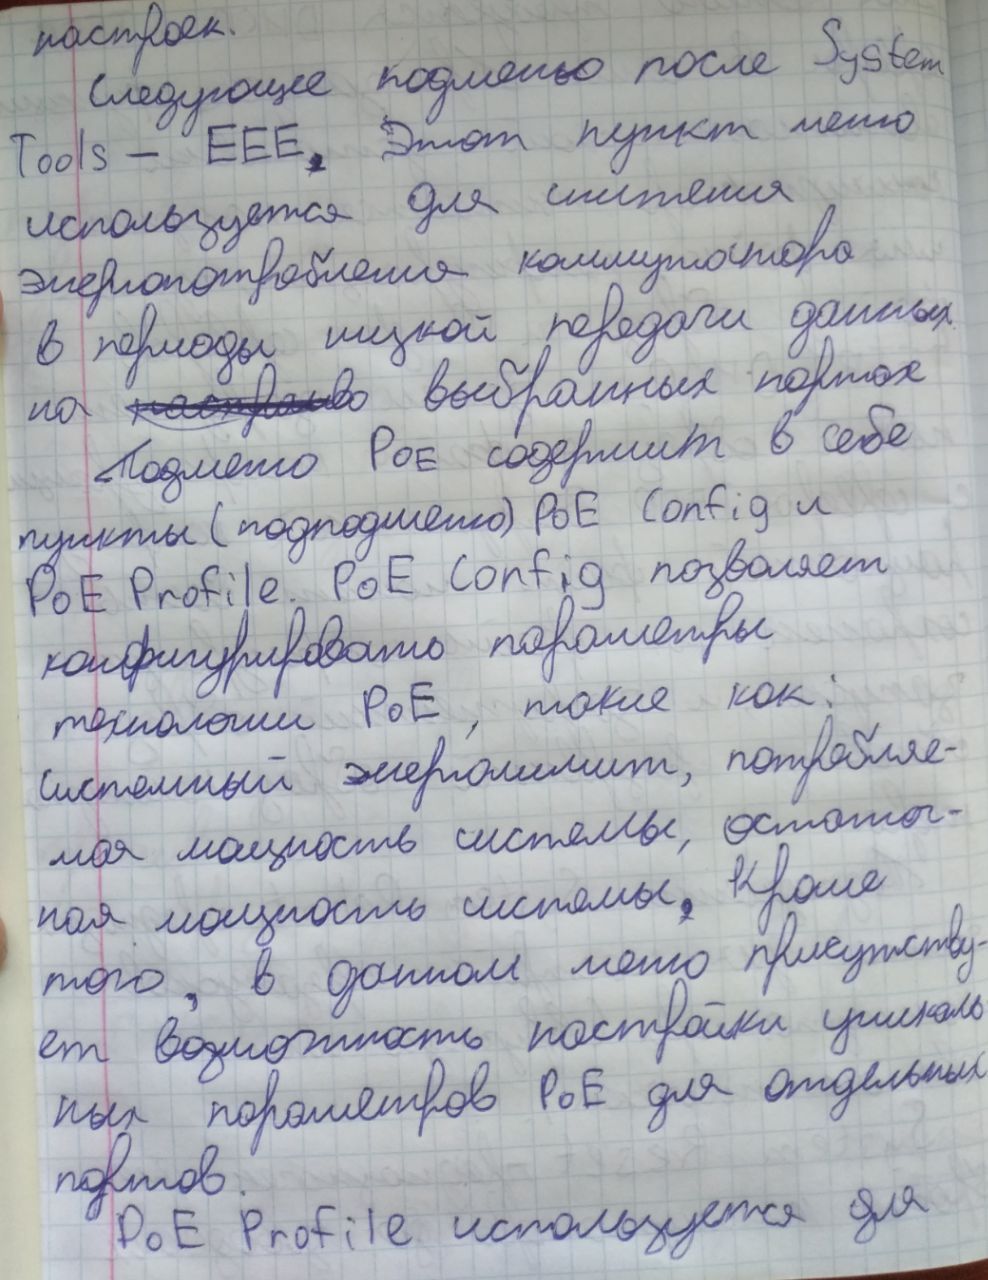 настроек.
Следующее подменю после System
Tools – EEE. Этот пункт меню
используется для снижения
энергопотребления коммутатора
в периоды низкой передачи данных
на выбранных портах
Подменю PoE содержит в себе
пункты (подподменю) PoE Config и
PoE Profile. PoE Config позволяет
конфигурировать параметры
технологии PoE, такие как:
системный энерголимит, потребляе-
мая мощность системы, остаточ-
ная мощность системы. Кроме
того, в данном меню присутству-
ет возможность настройки уникаль
ных параметров PoE для отдельных
портов.
PoE Profile используется для